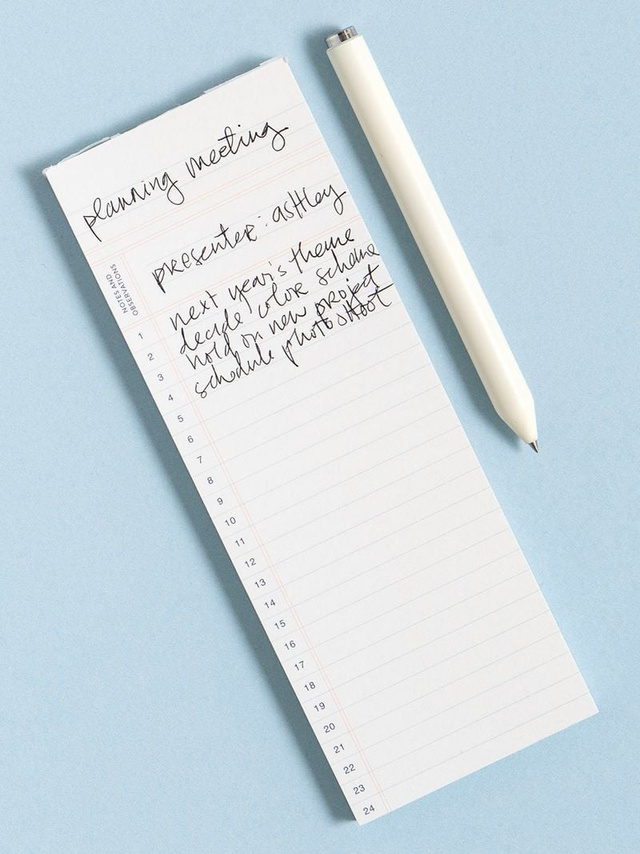 planning meeting
presenter: ashley
NOTES AND
OBSERVATIONS
1 next year's theme
2 decide color scheme
3 hold on new project
4 schedule photo shoot
5
6
7
8
9
10
11
12
13
14
15
16
17
18
19
20
21
22
23
24